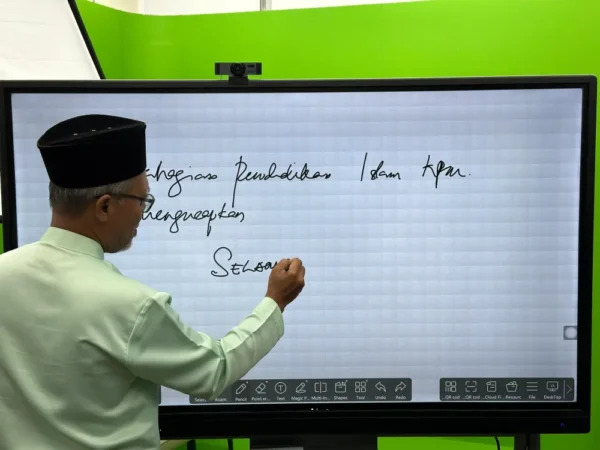 ahagian Pendidikan Islam KPM.
mengucapkan
SELAM
Select Room. Pencil Text Magic P... Multi in... Shapes Tool Undo Redo QR cod QR cod ... Cloud Fi... Resourc File DeskTop